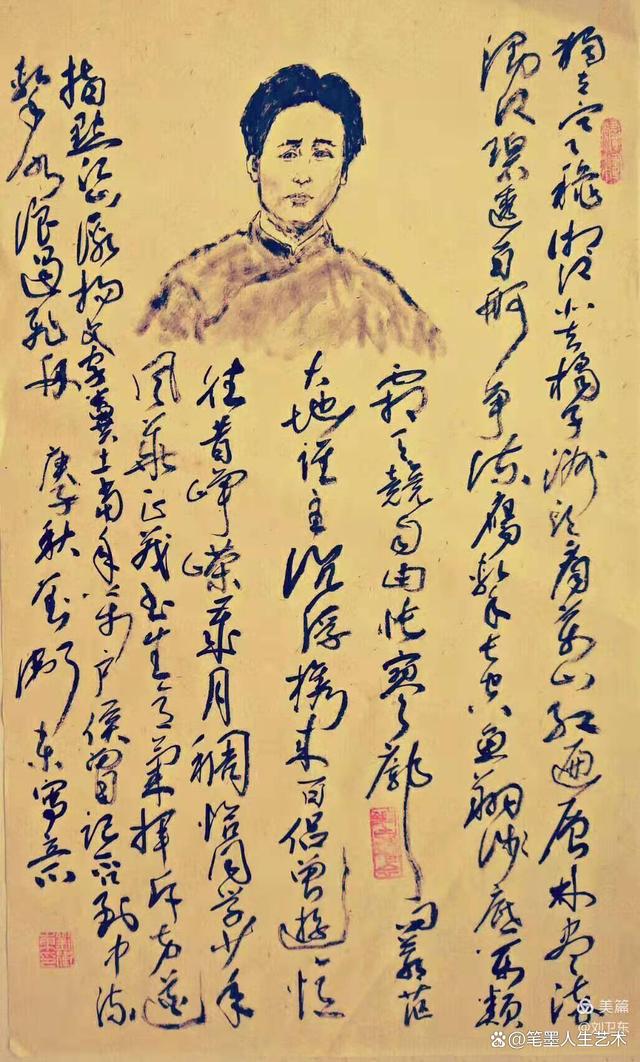 独立寒秋湘江北去橘子洲头看万山红遍层林尽染
漫江碧透百舸争流鹰击长空鱼翔浅底万类
霜天競自由怅寥廓问苍茫
大地谁主沉浮携来百侣曾游忆
往昔峥嵘岁月稠恰同学少年
风华正茂书生意气挥斥方遒
指点江山激扬文字糞土当年万户侯曾记否到中流
击水浪遏飞舟 庚子秋刘卫东写意
美篇
@刘卫东
@笔墨人生艺术